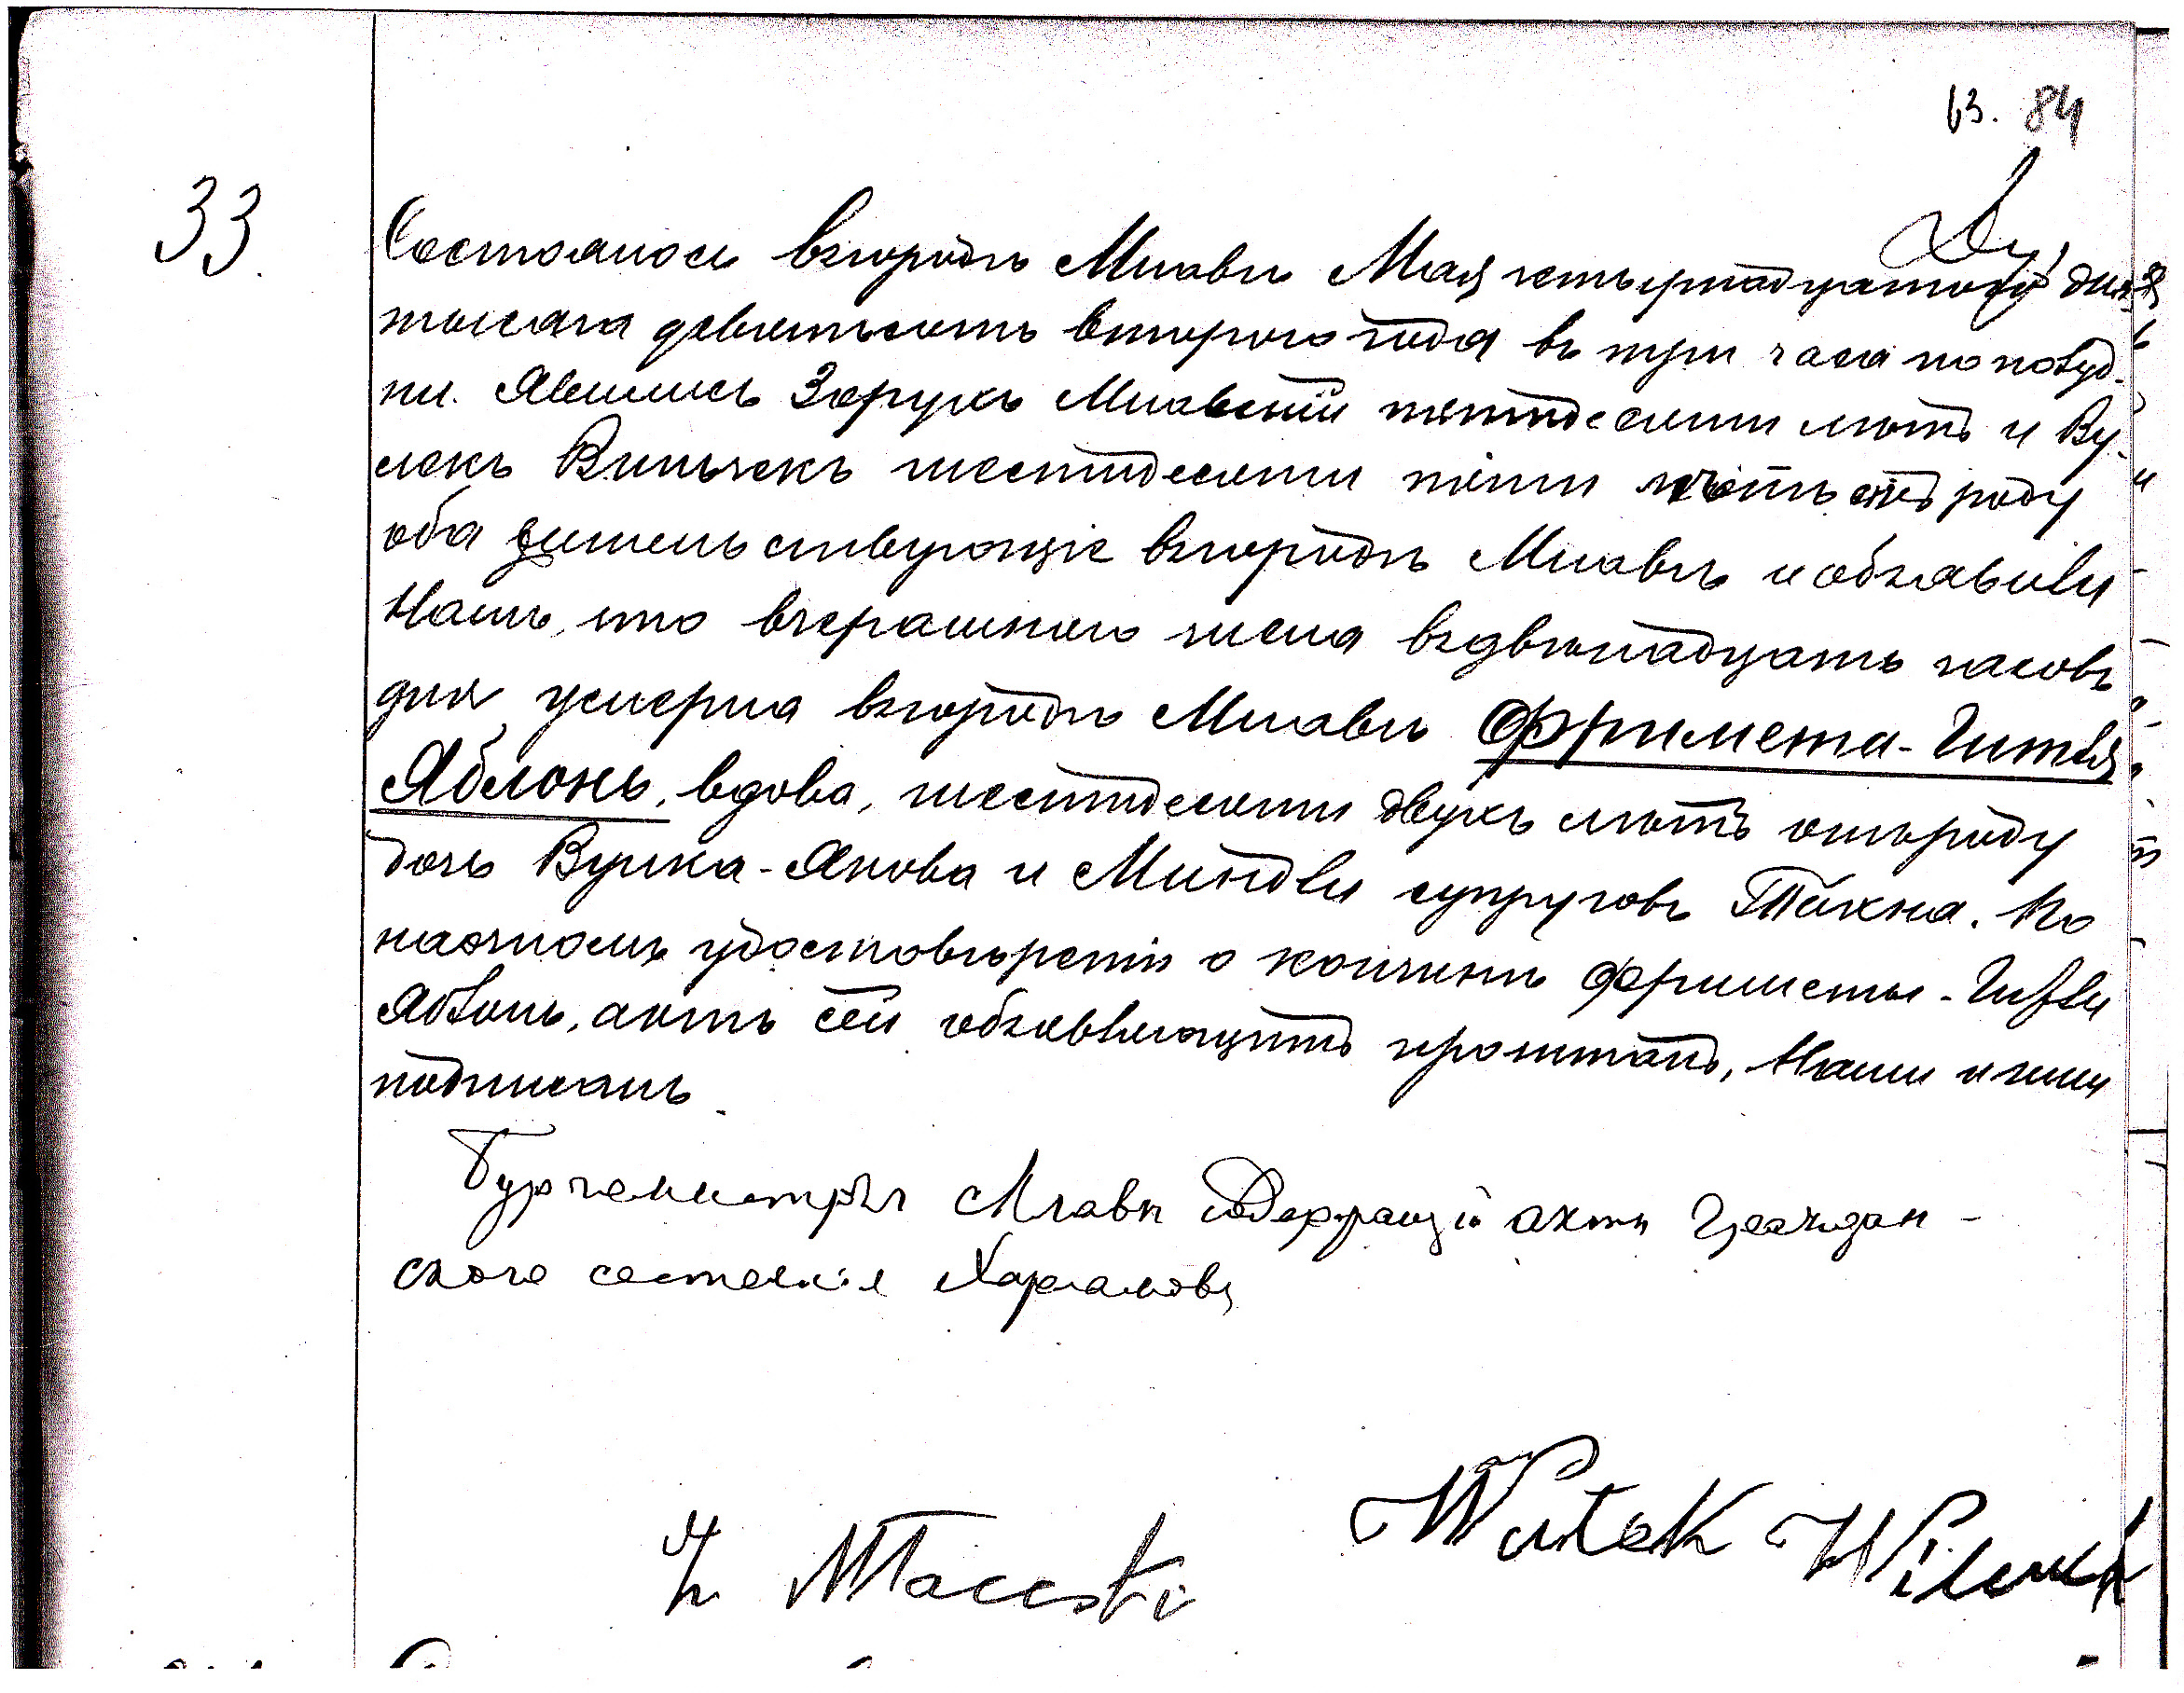 63. 84
33.
Состоялось въ городѣ Млавѣ Мая четырнадцатого дня
тысяча девятьсотъ второго года въ три часа по полуд-
ни. Явились Зерухъ Млавскій пятидесяти лѣтъ и Ву-
лекъ Вильчекъ шестидесяти пяти лѣтъ отъ роду
оба жительствующіе въ городѣ Млавѣ и объявили
Намъ, что вчерашняго числа въ двѣнадцать часовъ
дня умерла въ городѣ Млавѣ Фримета-Гитля
Яблонь, вдова, шестидесяти двухъ лѣтъ отъ роду
дочь Вулка-Якова и Миндли супруговъ По
наочномъ удостовѣреніи о кончинѣ Фриметы-Гитли
Яблонь, актъ сей объявляющимъ прочитанъ, Нами и ими
подписанъ.
Бургомистръ Млавы Содержащій акты Граждан-
скаго состоянія Харламовъ
Wulek Wilczek
H Mlawski